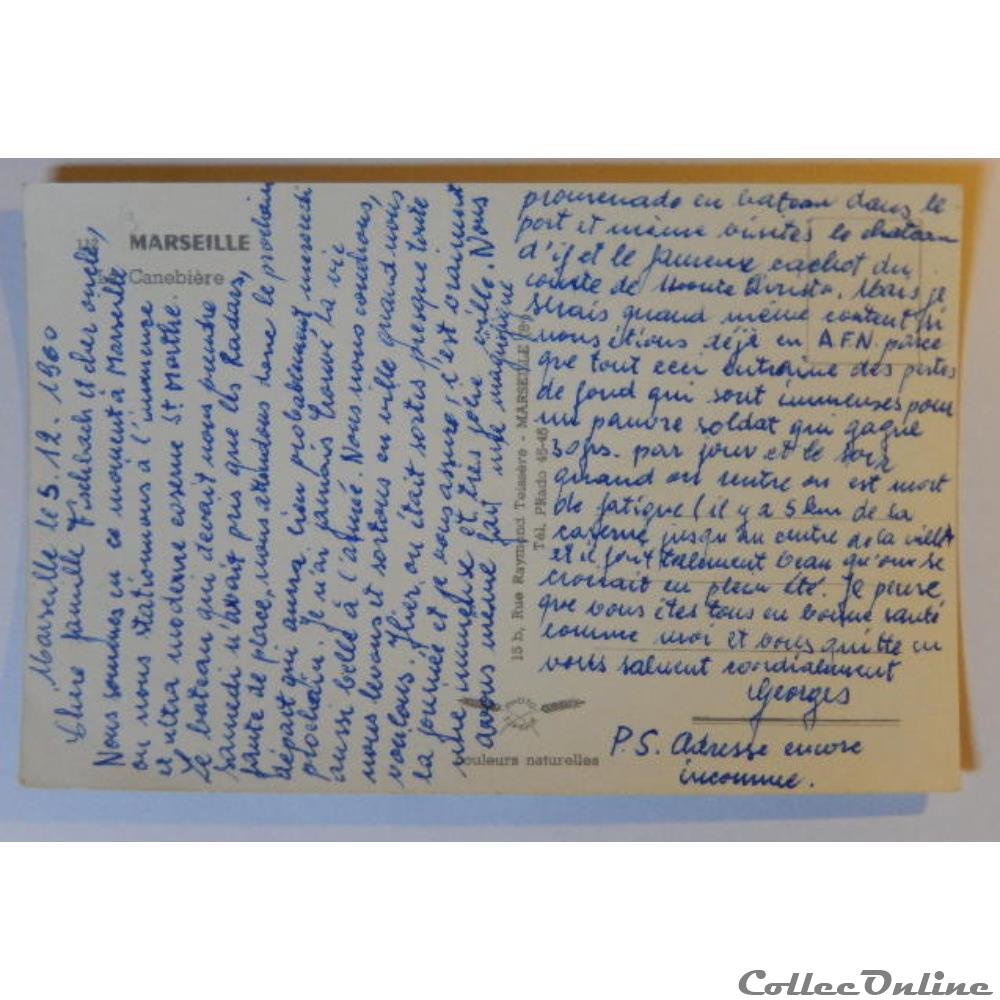 MARSEILLE
La Canebière
Marseille le 5.12.1960
Chère famille Fischbach et cher oncle,
Nous sommes en ce moment à Marseille
ou nous stationnons à l'immense
et ultra moderne caserne St Marthe.
Le bateau qui devait nous prendre
samedi n'avait pris que les Radars,
faute de place, nous attendons donc le prochain
départ qui aura lieu probablement mercredi
prochain. Je n'ai jamais trouvé la vie
aussi belle à l'armée. Nous nous couchons,
nous levons et sortons en ville quand nous
voulons. Hier, on était sortis presque toute
la journée et je vous assure, c'est vraiment
une immense et très jolie ville. Nous
avons même fait une magnifique
promenade en bateau dans le
port et même visités le chateau
d'if et le fameux cachot du
comte de Monte Christo. Mais je
serais quand même content si
nous étions déjà en A.F.N. parce
que tout ceci entraine des pertes
de fond qui sont immenses pour
un pauvre soldat qui gagne
50frs. par jour et le soir
quand on rentre on est mort
de fatigue (il y a 5 km de la
caserne jusqu'au centre de la ville)
et il fait tellement beau qu'on se
croirait en plein été. Je pense
que vous êtes tous en bonne santé
comme moi et vous quitte en
vous saluant cordialement
Georges
P.S. Adresse encore
inconnue.
15 b, Rue Raymond Teissère - MARSEILLE (8e)
Tél. PRado 45-45
Couleurs naturelles
CollecOnline